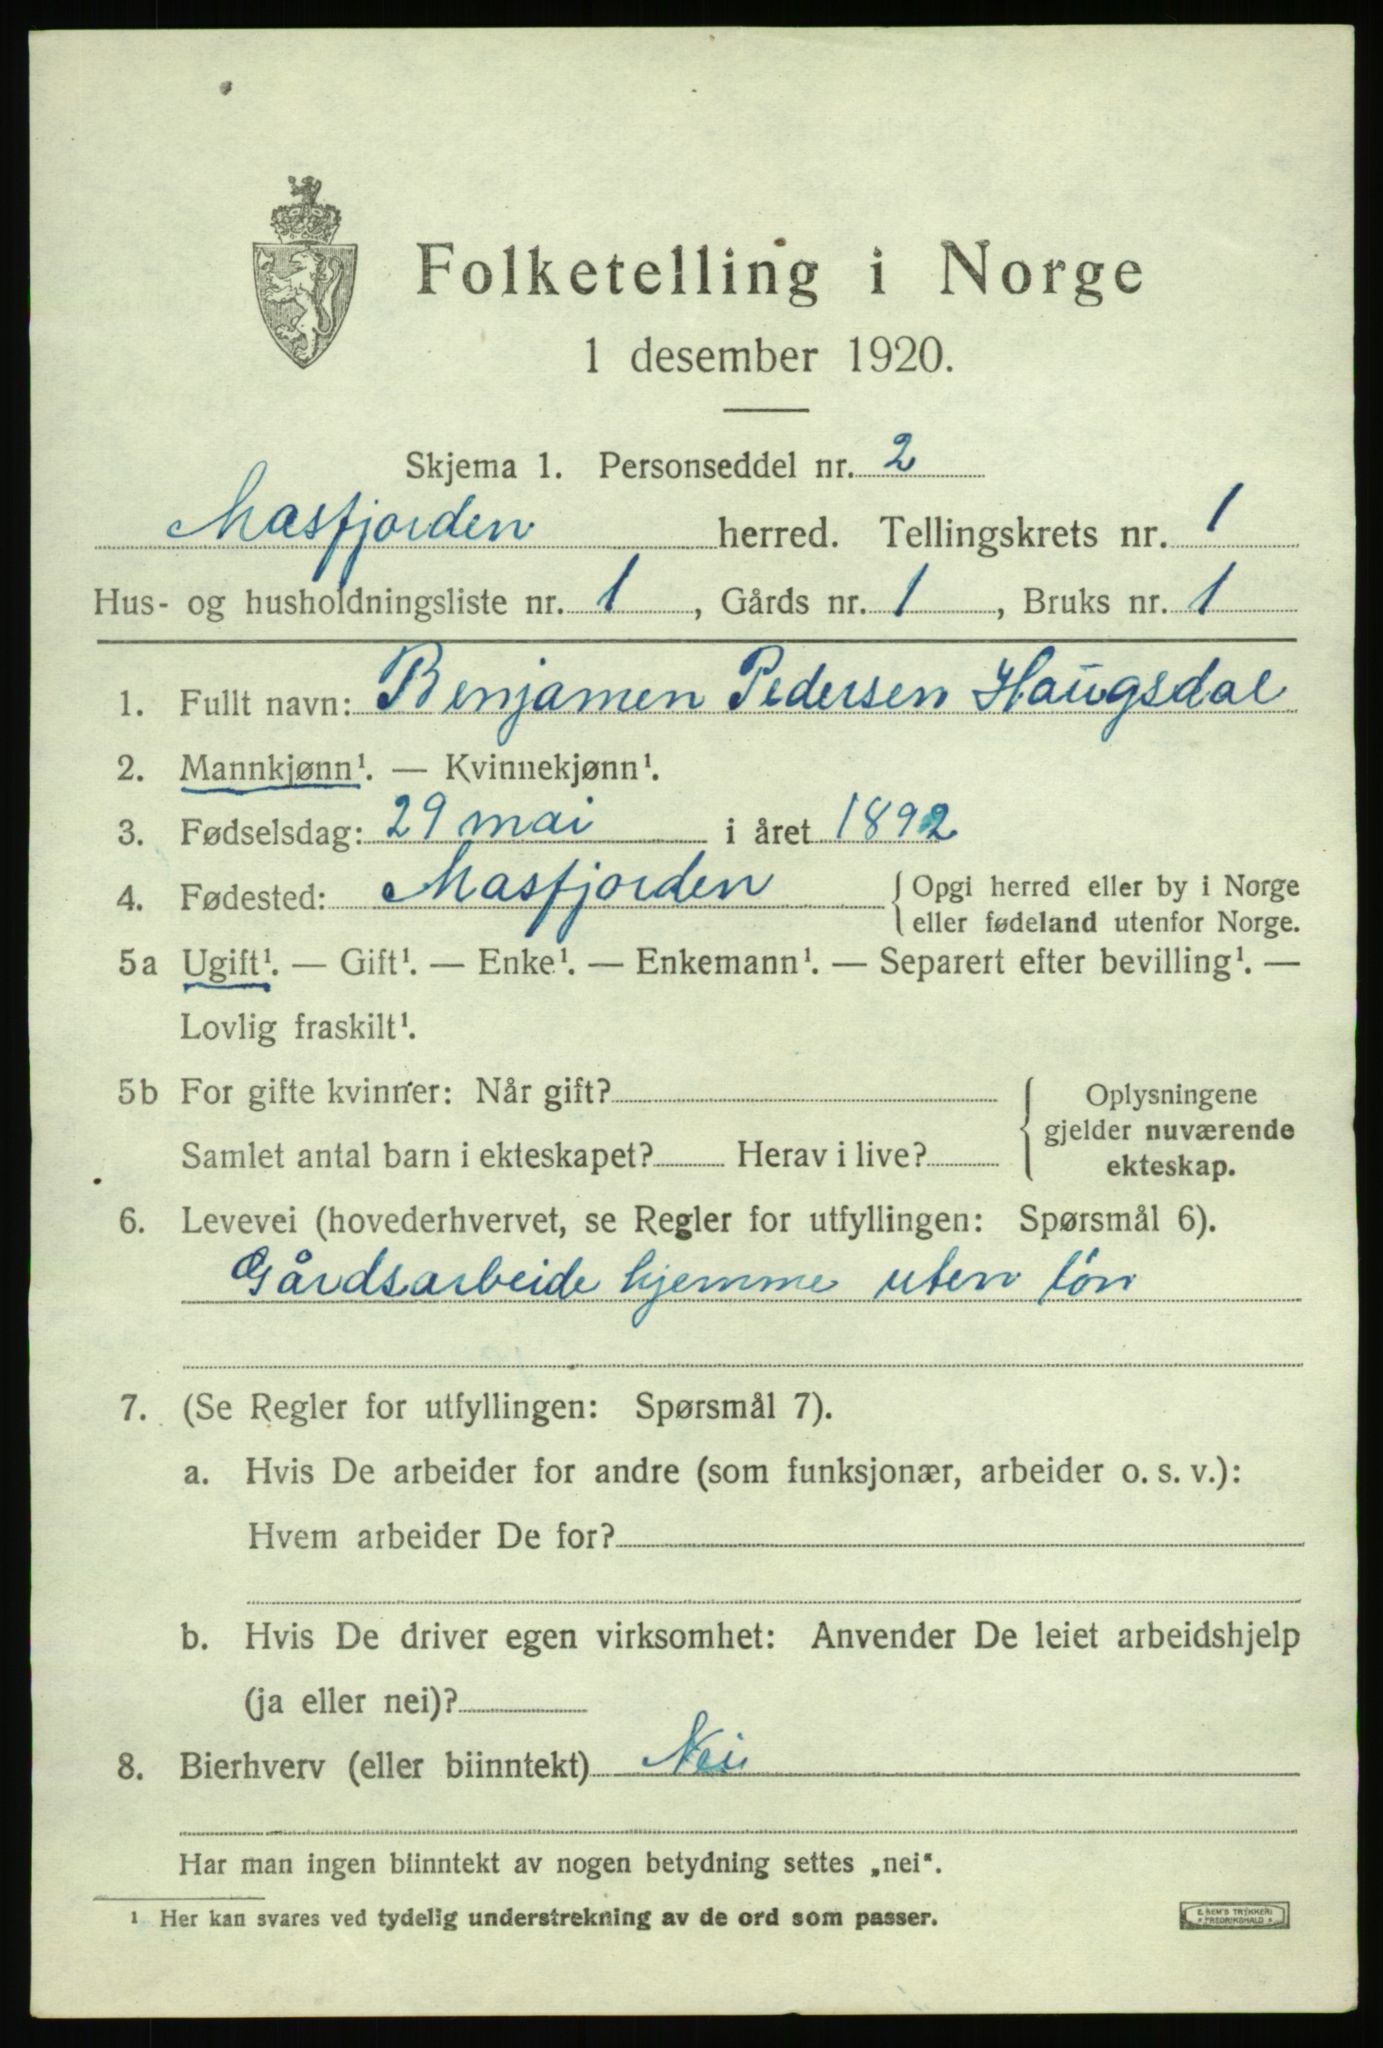 Folketelling i Norge
1 desember 1920.
Skjema 1. Personseddel nr. 2
Masfjorden herred. Tellingskrets nr. 1
Hus- og husholdningsliste nr. 1, Gårds nr. 1, Bruks nr. 1
1. Fullt navn: Benjamen Pedersen Haugsdal
2. Mannkjønn¹. — Kvinnekjønn¹.
3. Fødselsdag: 29 mai i året 1892
4. Fødested: Masfjorden { Opgi herred eller by i Norge
eller fødeland utenfor Norge.
5a Ugift¹. — Gift¹. — Enke¹. — Enkemann¹. — Separert efter bevilling¹. —
Lovlig fraskilt¹.
5b For gifte kvinner: Når gift? { Oplysningene
gjelder nuværende
Samlet antal barn i ekteskapet? Herav i live? ekteskap.
6. Levevei (hovederhvervet, se Regler for utfyllingen: Spørsmål 6).
Gårdsarbeide hjemme uten løn
7. (Se Regler for utfyllingen: Spørsmål 7).
a. Hvis De arbeider for andre (som funksjonær, arbeider o. s. v.):
Hvem arbeider De for?
b. Hvis De driver egen virksomhet: Anvender De leiet arbeidshjelp
(ja eller nei)?
8. Bierhverv (eller biinntekt) Nei
Har man ingen biinntekt av nogen betydning settes „nei“.
¹ Her kan svares ved tydelig understrekning av de ord som passer.
E. SEM'S TRYKKERI
FREDRIKSHALD